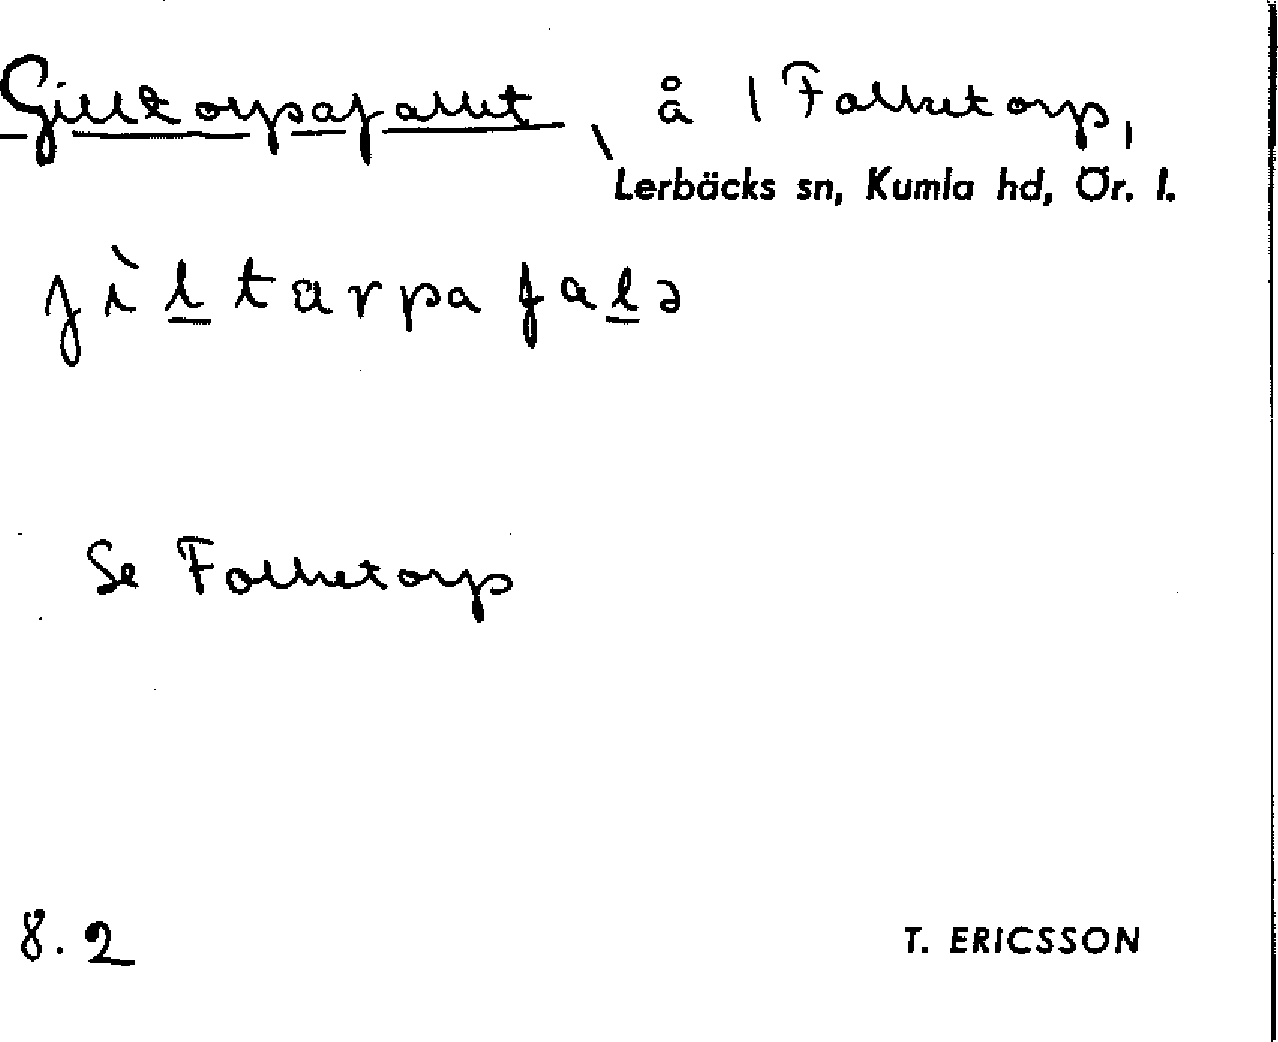 Gilltorpafallet, å 1 Folketorp,
Lerbäcks sn, Kumla hd, Ör. l.
jìltarpafalə
Se Folketorp
8.2
T. ERICSSON